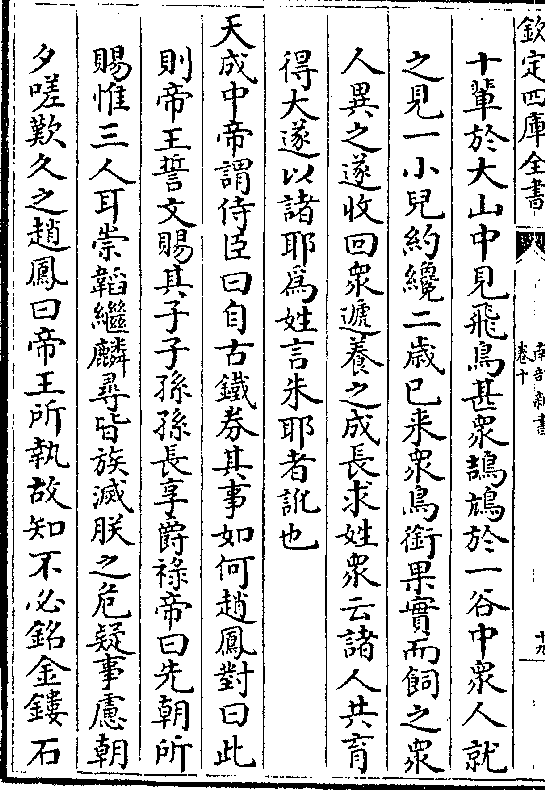 欽定四庫全書
南部新書
卷十
十九
十輩於大山中見飛鳥甚衆鵲鴆於一谷中衆人就
之見一小兒約纔二歲已来衆鳥銜果實而飼之衆
人異之遂收回衆遞養之成長求姓衆云諸人共育
得大遂以諸耶爲姓言朱耶者訛也
天成中帝謂侍臣曰自古鐵劵其事如何趙鳳對曰此
則帝王誓文賜其子子孫孫長享爵祿帝曰先朝所
賜惟三人耳崇韜繼麟尋皆族滅朕之危疑事慮朝
夕嗟歎久之趙鳳曰帝王所執故知不必銘金鏤石